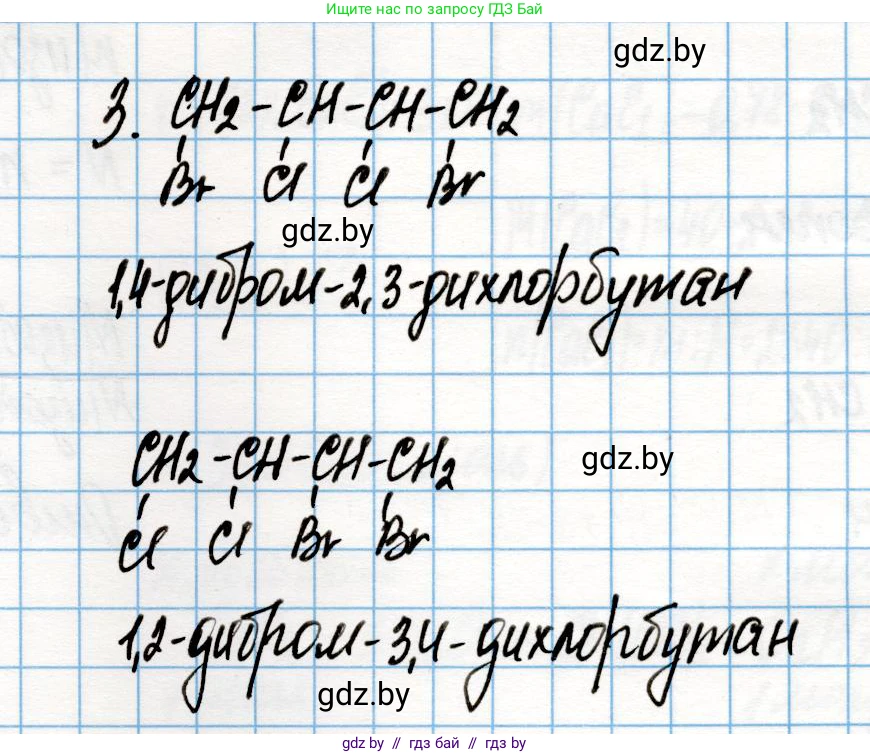 Ищите нас по запросу ГДЗ Бай
gdz.by
3. CH2-CH-CH-CH2
Br Cl Cl Br
gdz.by
1,4-дибром-2,3-дихлорбутан
CH2-CH-CH-CH2
gdz.by
Cl Cl Br Br
1,2-дибром-3,4-дихлорбутан
gdz.by
gdz.by // гдз бай // гдз by